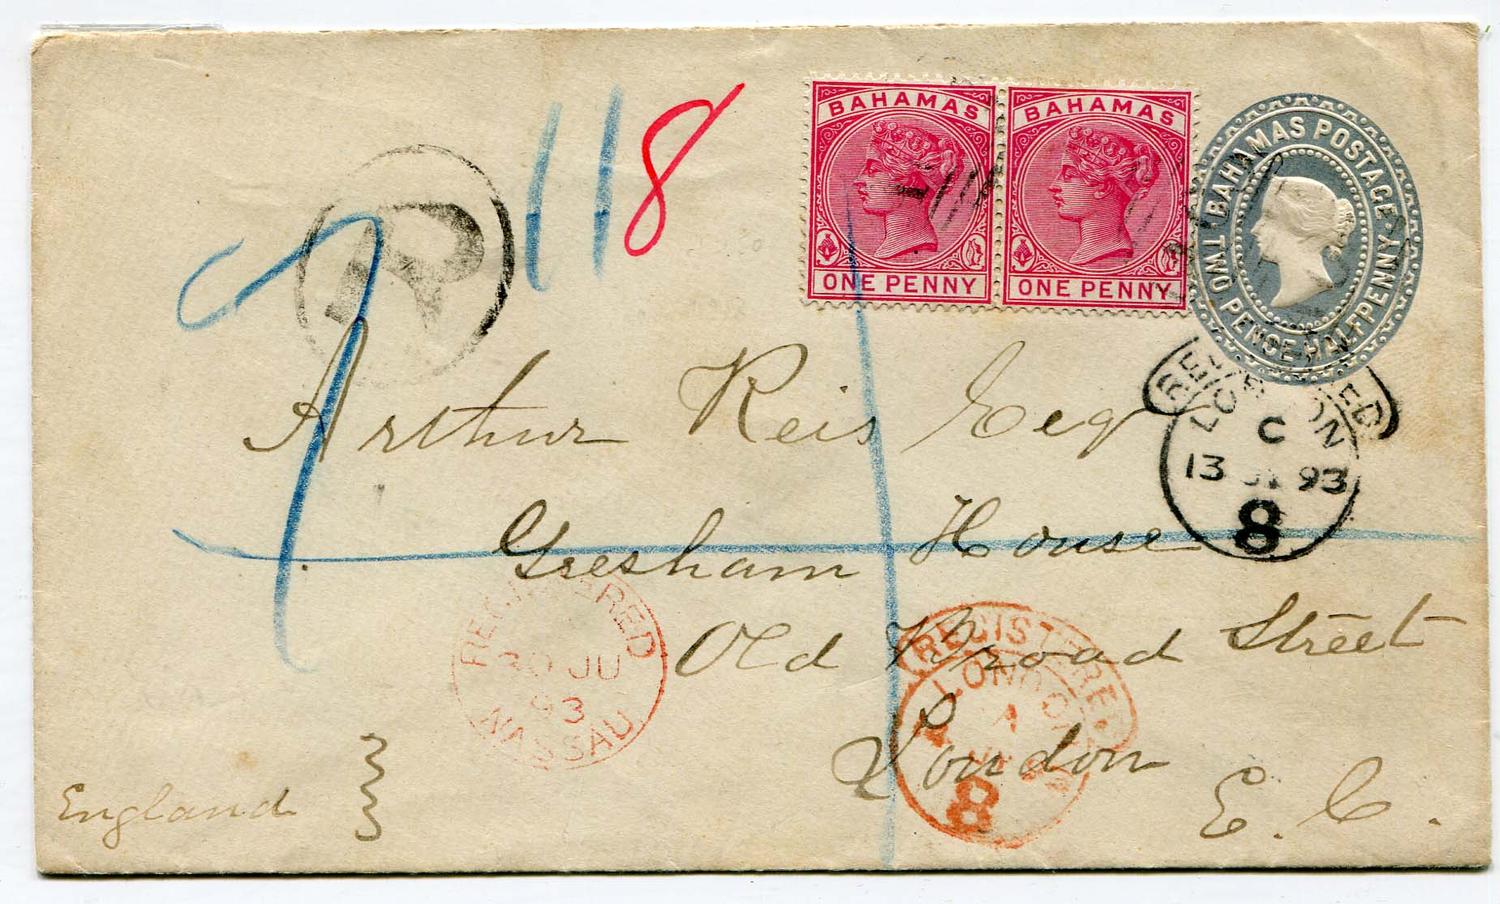 118
R
BAHAMAS
ONE PENNY
BAHAMAS
ONE PENNY
BAHAMAS POSTAGE
TWO PENCE HALFPENNY
Arthur Reis Esq
Gresham House
Old Broad Street
London
E. C.
England
REGISTERED
LONDON
C
13 93
8
REGISTERED
JU
93
NASSAU
REGISTERED
LONDON
A
8